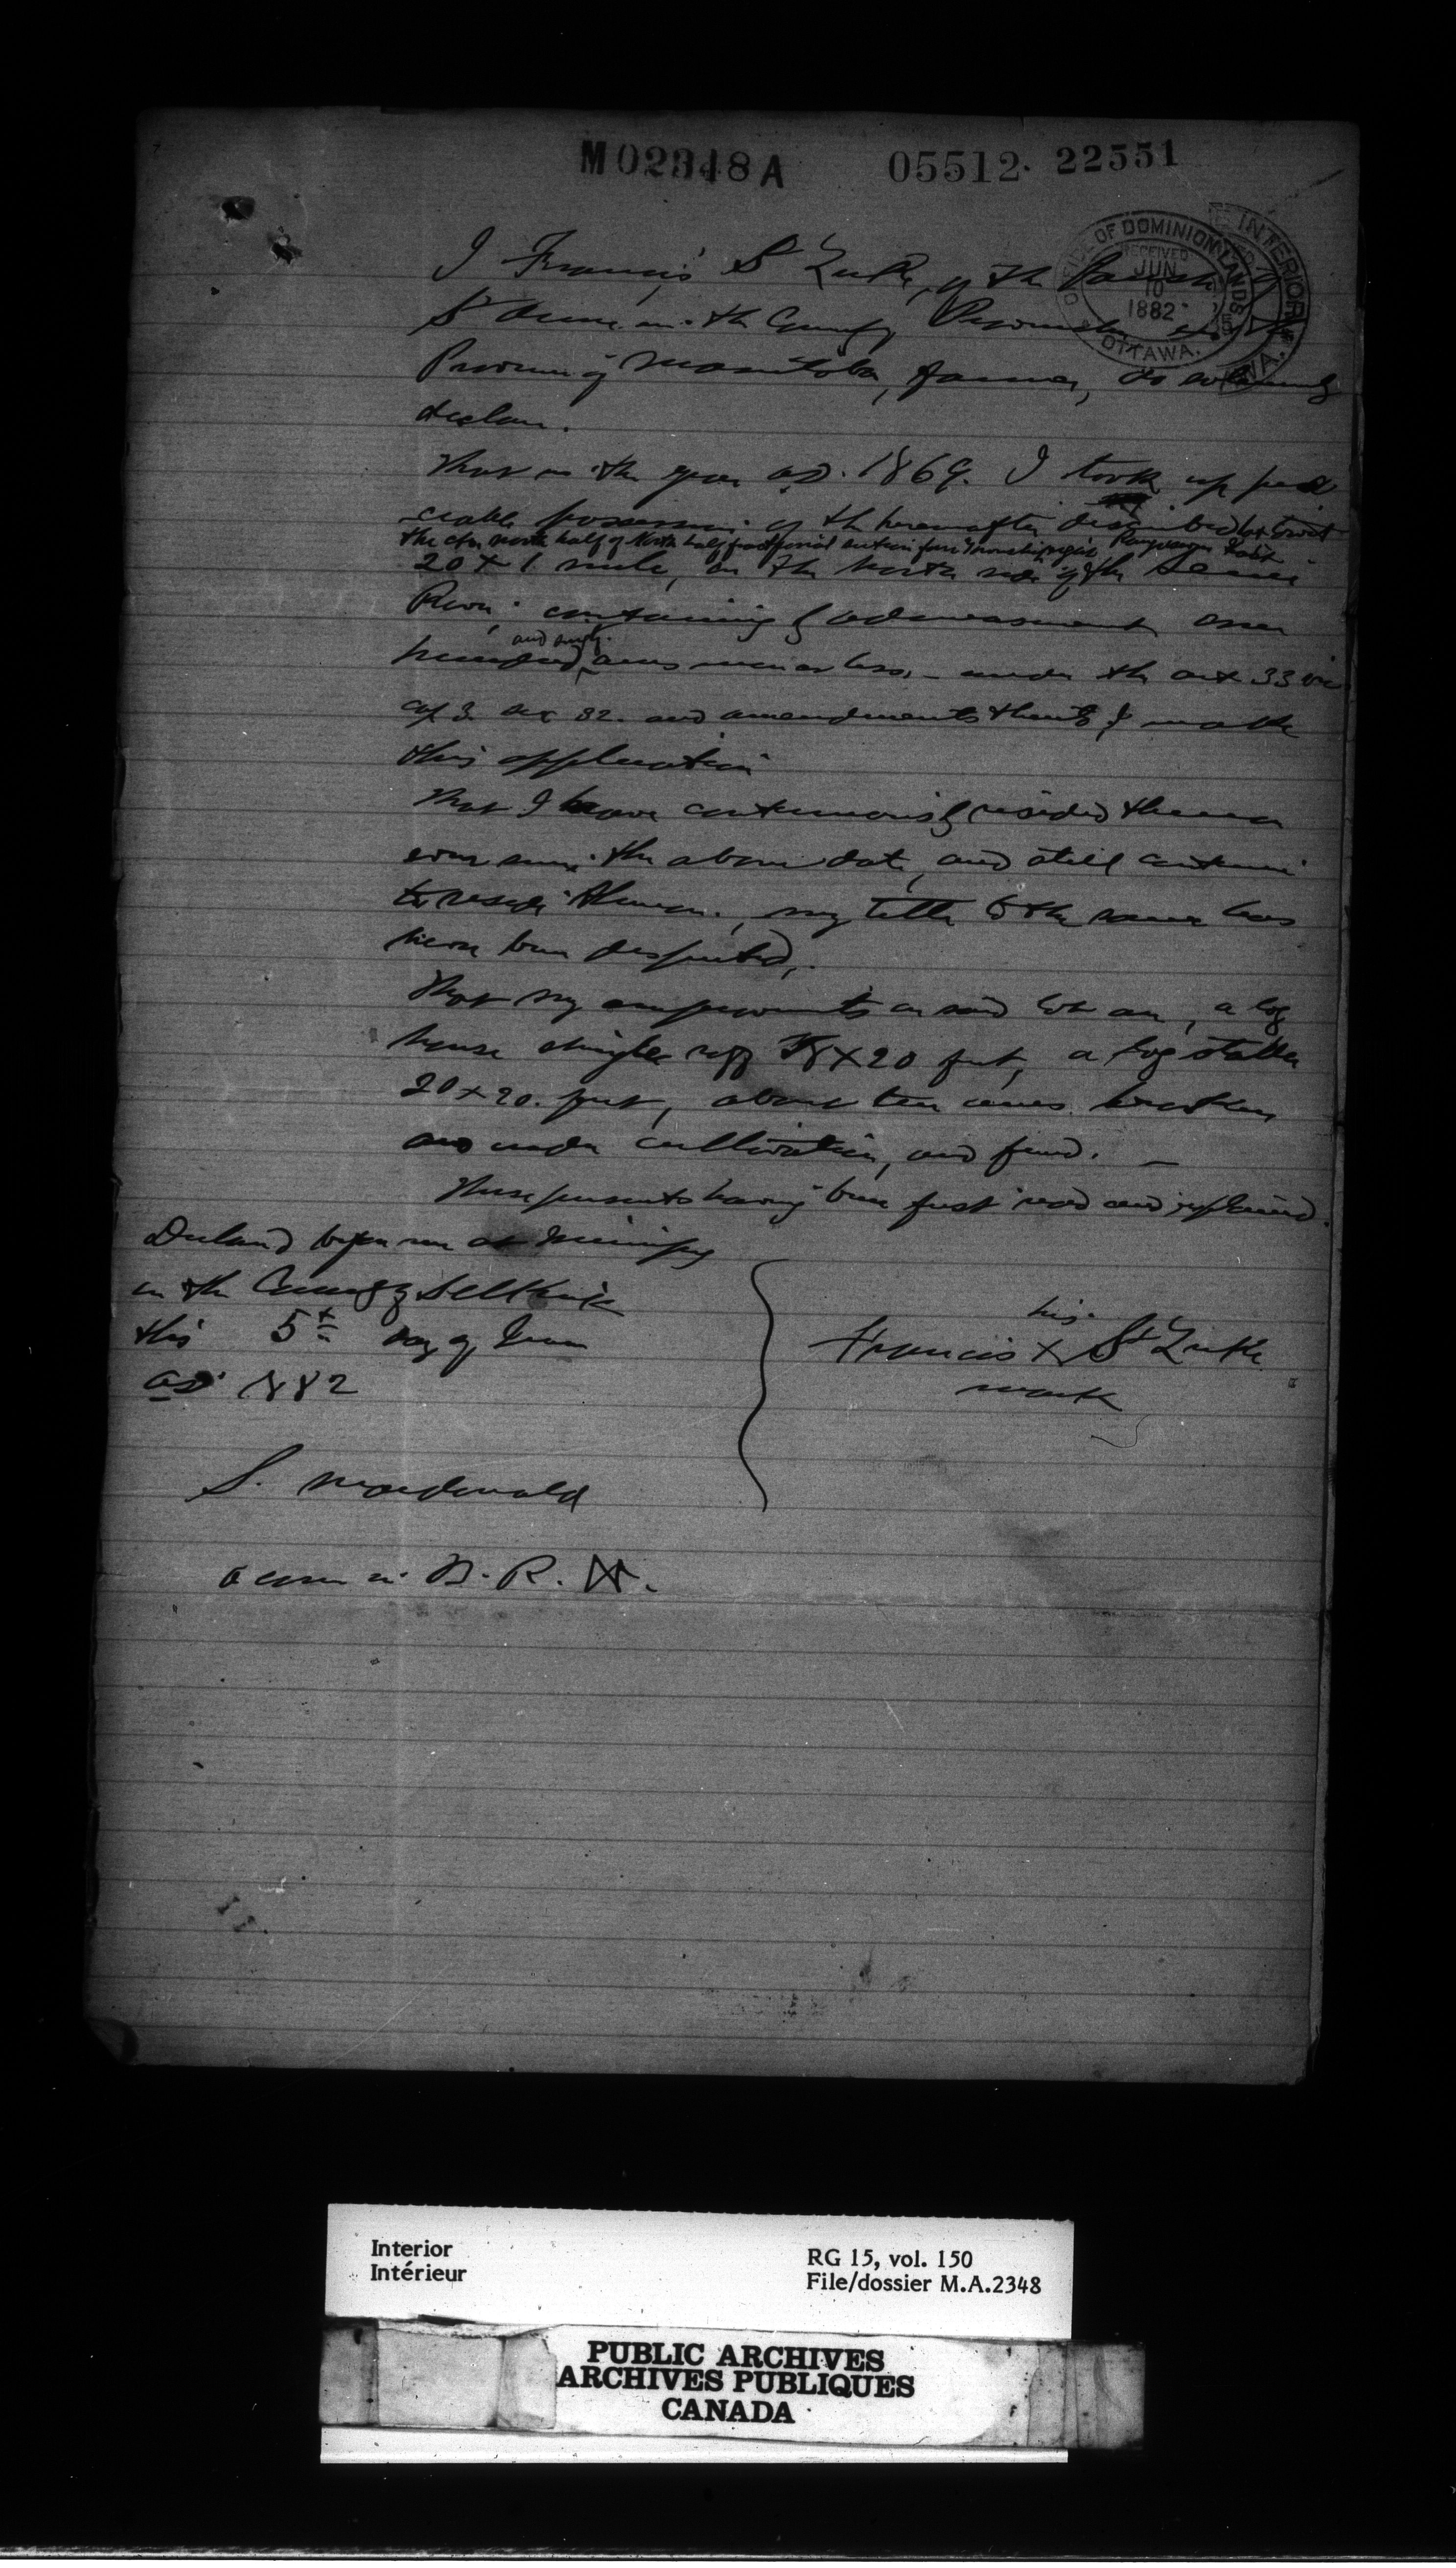 M02348A 05512. 22551
OFFICE OF DOMINION LANDS
RECEIVED
JUN
10
1882
OTTAWA.
INTERIOR
I Francis St Luke, of the Parish
St Anne in the County Provencher
Province of Manitoba, farmer, do solemnly
declare.
That in the year AD. 1869. I took up pea
ceable possession of the hereafter described lot
north half of North half section
20 × 1 mile, on the North side of the Seine
River, containing by admeasurement one
hundred and sixty acres more or less, - under the act 33 Vic
cap 3. sec 32. and amendments thereto, I make
this application
That I have continuously resided thereon
ever since the above date, and still continue
to reside thereon, my title to the same has
never been disputed,
That my improvements on said lot are, a log
house shingle roof 18 × 20 feet, a log stable
20 × 20. feet, about ten acres broken
and under cultivation, and fenced. —
These presents having been first read and explained.
Declared before me at Winnipeg
in the County of Selkirk
this 5th day of June
AD 1882
his
Francis × St Luke
mark
S. Macdonald
a Com in B. R.
Interior
Intérieur
RG 15, vol. 150
File/dossier M.A.2348
PUBLIC ARCHIVES
ARCHIVES PUBLIQUES
CANADA